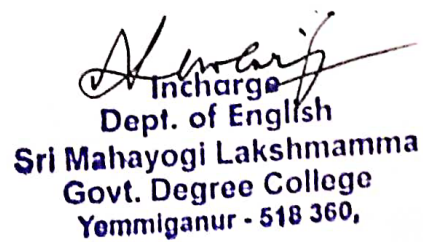 Incharge
Dept. of English
Sri Mahayogi Lakshmamma
Govt. Degree College
Yemmiganur - 518 360,